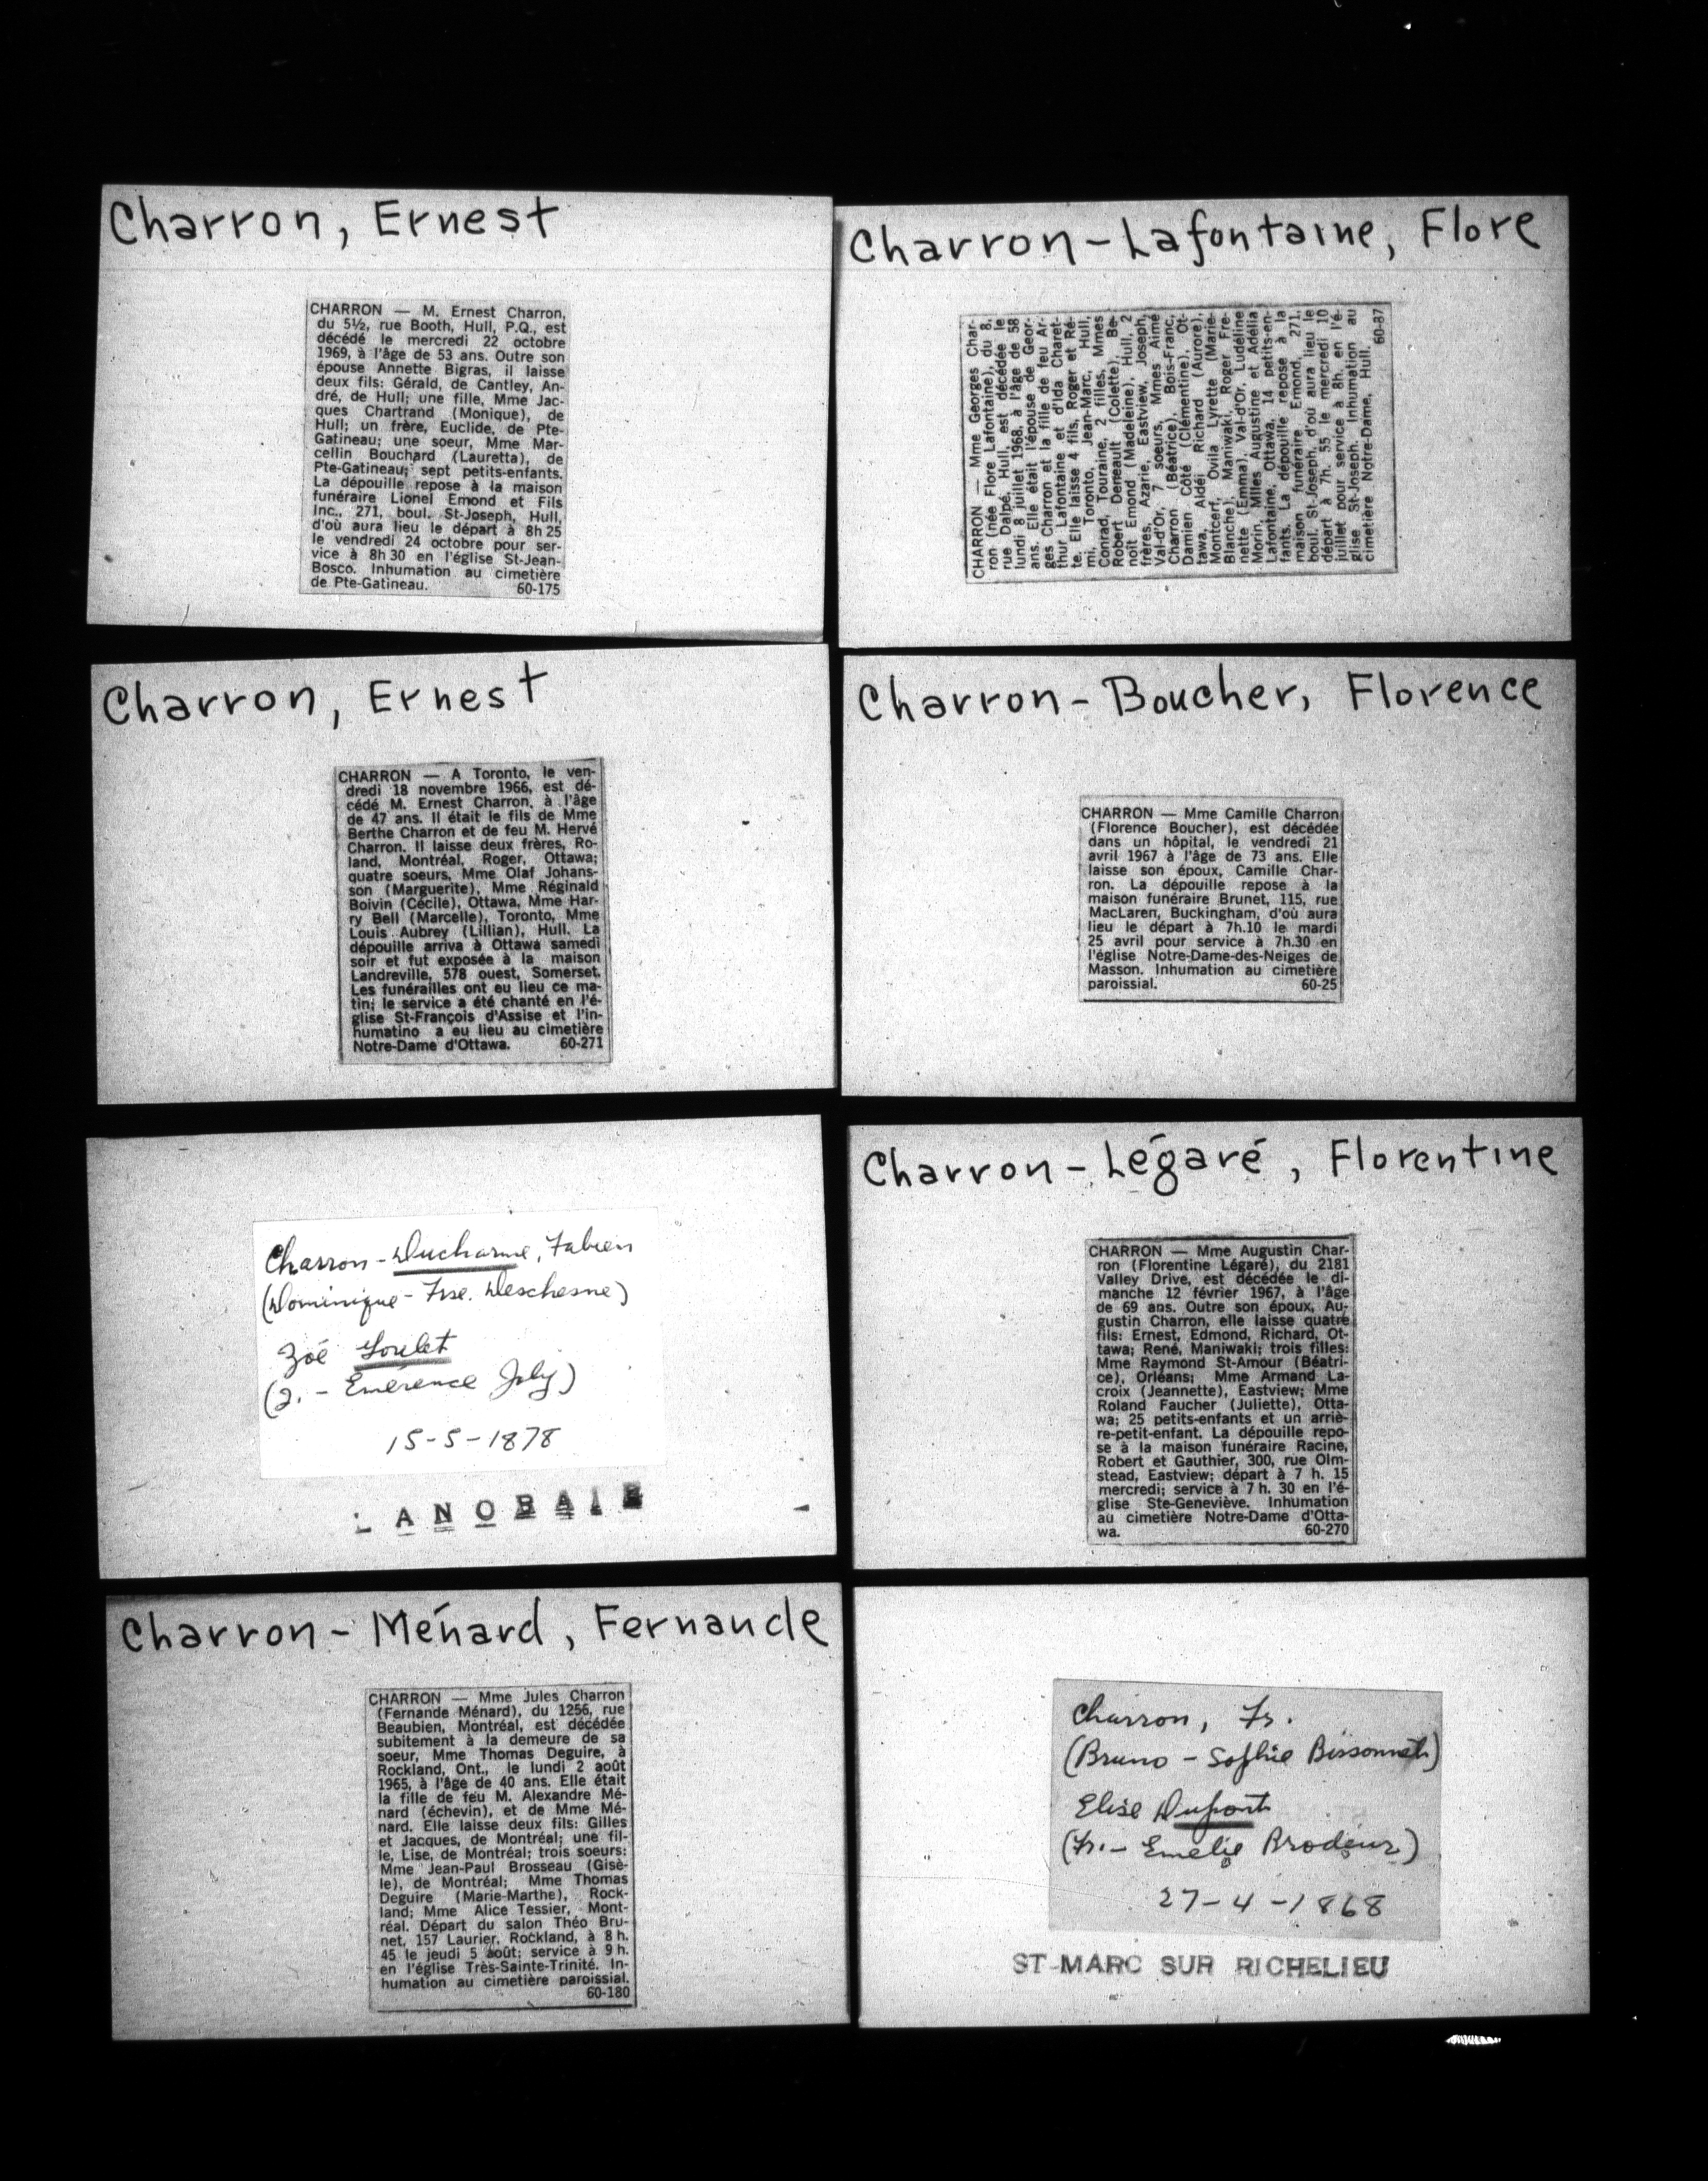 Charron, Ernest
CHARRON — M. Ernest Charron,
du 5½, rue Booth, Hull, P.Q., est
décédé le mercredi 22 octobre
1969, à l'âge de 53 ans. Outre son
épouse Annette Bigras, il laisse
deux fils: Gérald, de Cantley, An-
dré, de Hull; une fille, Mme Jac-
ques Chartrand (Monique), de
Hull; un frère, Euclide, de Pte-
Gatineau; une soeur, Mme Mar-
cellin Bouchard (Lauretta), de
Pte-Gatineau; sept petits-enfants.
La dépouille repose à la maison
funéraire Lionel Emond et Fils
Inc., 271, boul. St-Joseph, Hull,
d'où aura lieu le départ à 8h 25
le vendredi 24 octobre pour ser-
vice à 8h 30 en l'église St-Jean-
Bosco. Inhumation au cimetière
de Pte-Gatineau. 60-175
Charron-Lafontaine, Flore
CHARRON — Mme Georges Char-
ron (née Flore Lafontaine), du 8,
rue Dalpé, Hull, est décédée le
lundi 8 juillet 1968, à l'âge de 58
ans. Elle était l'épouse de Geor-
ges Charron et la fille de feu Ar-
thur Lafontaine et d'Ida Charet-
te. Elle laisse 4 fils, Roger et Ré-
mi, Toronto, Jean-Marc, Hull,
Conrad, Touraine, 2 filles, Mmes
Robert Deneault (Colette), Be-
noît Emond (Madeleine), Hull, 2
frères, Azarie, Eastview, Joseph,
Val-d'Or, 7 soeurs, Mmes Aimé
Charron (Béatrice), Bois-Franc,
Damien Côté (Clémentine), Ot-
tawa, Aldéi Richard (Aurore),
Montcerf, Ovila Lyrette (Marie-
Blanche), Maniwaki, Roger Fre-
nette (Emma), Val-d'Or, Ludéline
Morin, Mlles Augustine et Adélia
Lafontaine, Ottawa, 14 petits-en-
fants. La dépouille repose à la
maison funéraire Emond, 271,
boul. St-Joseph, d'où aura lieu le
départ à 7h. 55 le mercredi 10
juillet pour service à 8h. en l'é-
glise St-Joseph. Inhumation au
cimetière Notre-Dame, Hull.
60-87
Charron, Ernest
CHARRON — A Toronto, le ven-
dredi 18 novembre 1966, est dé-
cédé M. Ernest Charron, à l'âge
de 47 ans. Il était le fils de Mme
Berthe Charron et de feu M. Hervé
Charron. Il laisse deux frères, Ro-
land, Montréal, Roger, Ottawa;
quatre soeurs, Mme Olaf Johans-
son (Marguerite), Mme Réginald
Boivin (Cécile), Ottawa, Mme Har-
ry Bell (Marcelle), Toronto, Mme
Louis Aubrey (Lillian), Hull. La
dépouille arriva à Ottawa samedi
soir et fut exposée à la maison
Landreville, 578 ouest, Somerset.
Les funérailles ont eu lieu ce ma-
tin; le service a été chanté en l'é-
glise St-François d'Assise et l'in-
humatino a eu lieu au cimetière
Notre-Dame d'Ottawa. 60-271
Charron-Boucher, Florence
CHARRON — Mme Camille Charron
(Florence Boucher), est décédée
dans un hôpital, le vendredi 21
avril 1967 à l'âge de 73 ans. Elle
laisse son époux, Camille Char-
ron. La dépouille repose à la
maison funéraire Brunet, 115, rue
MacLaren, Buckingham, d'où aura
lieu le départ à 7h.10 le mardi
25 avril pour service à 7h.30 en
l'église Notre-Dame-des-Neiges de
Masson. Inhumation au cimetière
paroissial. 60-25
Charron-Ducharme, Fabien
(Dominique - Frse. Deschesne)
Zoé Loulet
(J. - Emérence Joly)
15-5-1878
LANORAIE
Charron-Légaré, Florentine
CHARRON — Mme Augustin Char-
ron (Florentine Légaré), du 2181
Valley Drive, est décédée le di-
manche 12 février 1967, à l'âge
de 69 ans. Outre son époux, Au-
gustin Charron, elle laisse quatre
fils: Ernest, Edmond, Richard, Ot-
tawa; René, Maniwaki; trois filles:
Mme Raymond St-Amour (Béatri-
ce), Orléans; Mme Armand La-
croix (Jeannette), Eastview; Mme
Roland Faucher (Juliette), Otta-
wa; 25 petits-enfants et un arriè-
re-petit-enfant. La dépouille repo-
se à la maison funéraire Racine,
Robert et Gauthier, 300, rue Olm-
stead, Eastview; départ à 7 h. 15
mercredi; service à 7 h. 30 en l'é-
glise Ste-Geneviève. Inhumation
au cimetière Notre-Dame d'Otta-
wa. 60-270
Charron-Ménard, Fernande
CHARRON — Mme Jules Charron
(Fernande Ménard), du 1256, rue
Beaubien, Montréal, est décédée
subitement à la demeure de sa
soeur, Mme Thomas Deguire, à
Rockland, Ont., le lundi 2 août
1965, à l'âge de 40 ans. Elle était
la fille de feu M. Alexandre Mé-
nard (échevin), et de Mme Mé-
nard. Elle laisse deux fils: Gilles
et Jacques, de Montréal; une fil-
le, Lise, de Montréal; trois soeurs:
Mme Jean-Paul Brosseau (Gisè-
le), de Montréal; Mme Thomas
Deguire (Marie-Marthe), Rock-
land; Mme Alice Tessier, Mont-
réal. Départ du salon Théo Bru-
net, 157 Laurier, Rockland, à 8 h.
45 le jeudi 5 août; service à 9 h.
en l'église Très-Sainte-Trinité. In-
humation au cimetière paroissial.
60-180
Charron, Fr.
(Bruno - Sophie Bissonnett)
Elise Dupont
(Fr. - Emélie Brodeur)
27-4-1868
ST-MARC SUR RICHELIEU